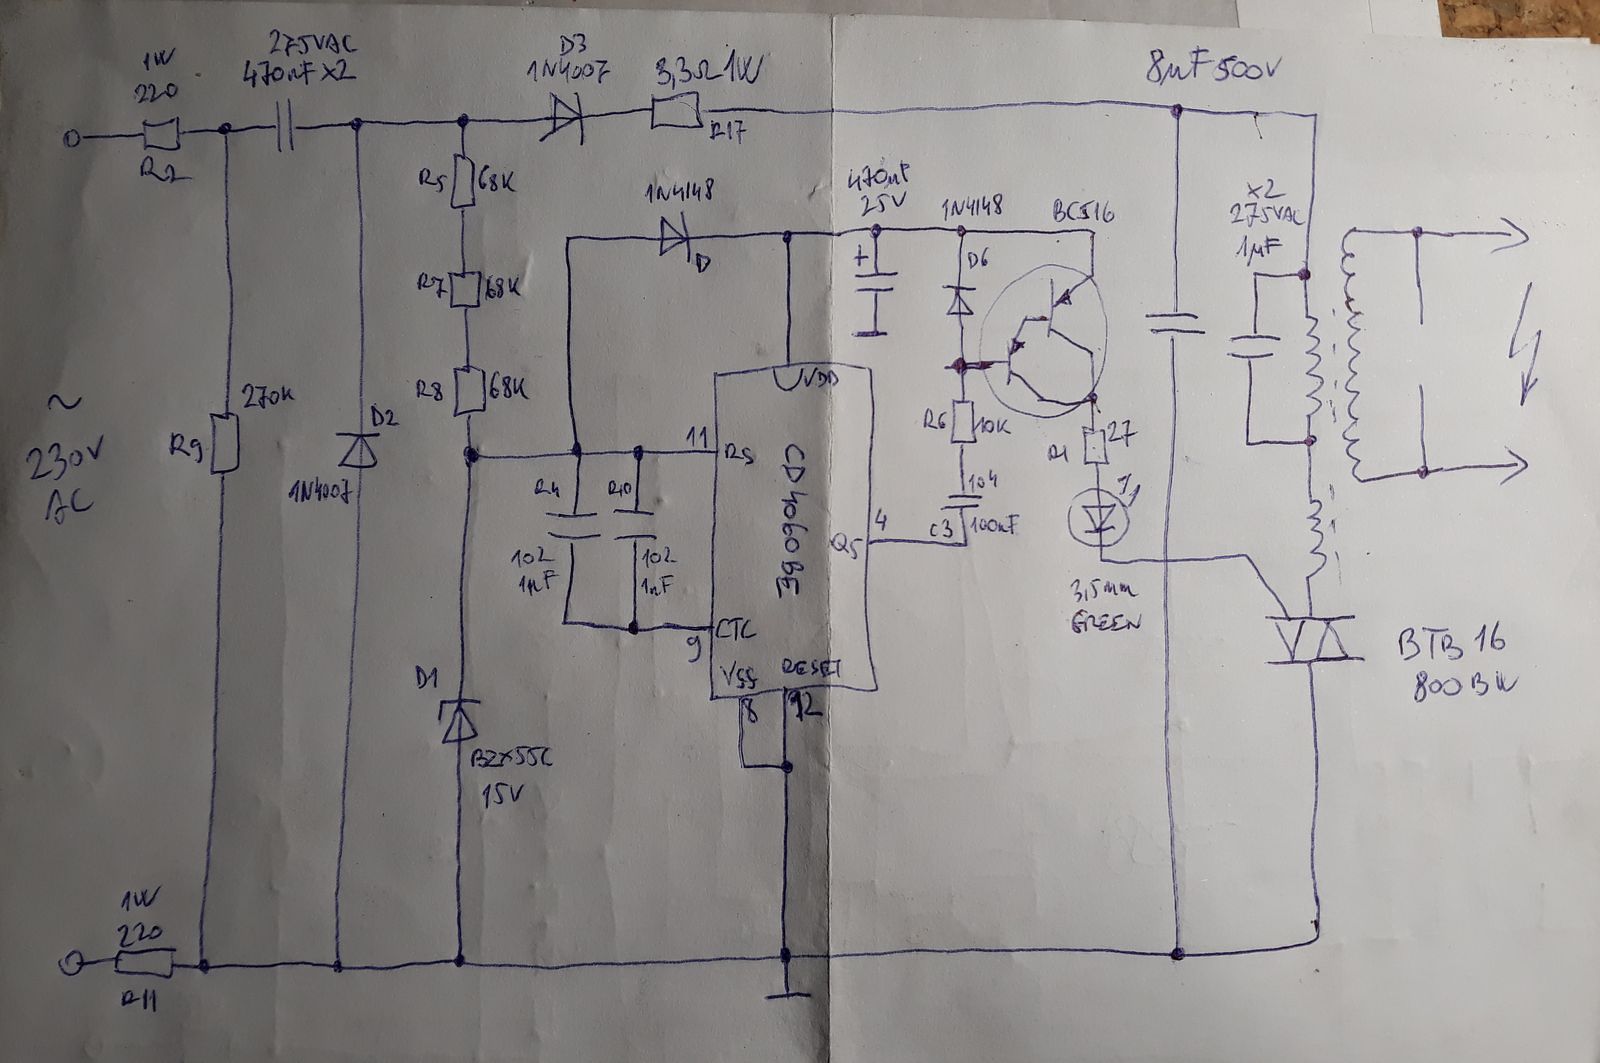 1W
220
R2
275VAC
470nF X2
D3
1N4007
3,3Ω 1W
R17
8µF 500V
R5 68K
R7 68K
R8 68K
1N4148
D
470µF
25V
+
1N4148
D6
BC516
X2
275VAC
1µF
~
230V
AC
R9
270K
D2
1N4007
R4
102
1nF
R10
102
1nF
11
RS
VDD
CD4060BE
4
Q5
9
CTC
VSS
RESET
8
12
R6
10K
104
C3
100nF
R1
27
3,5mm
GREEN
BTB 16
800BW
D1
BZX55C
15V
1W
220
R11